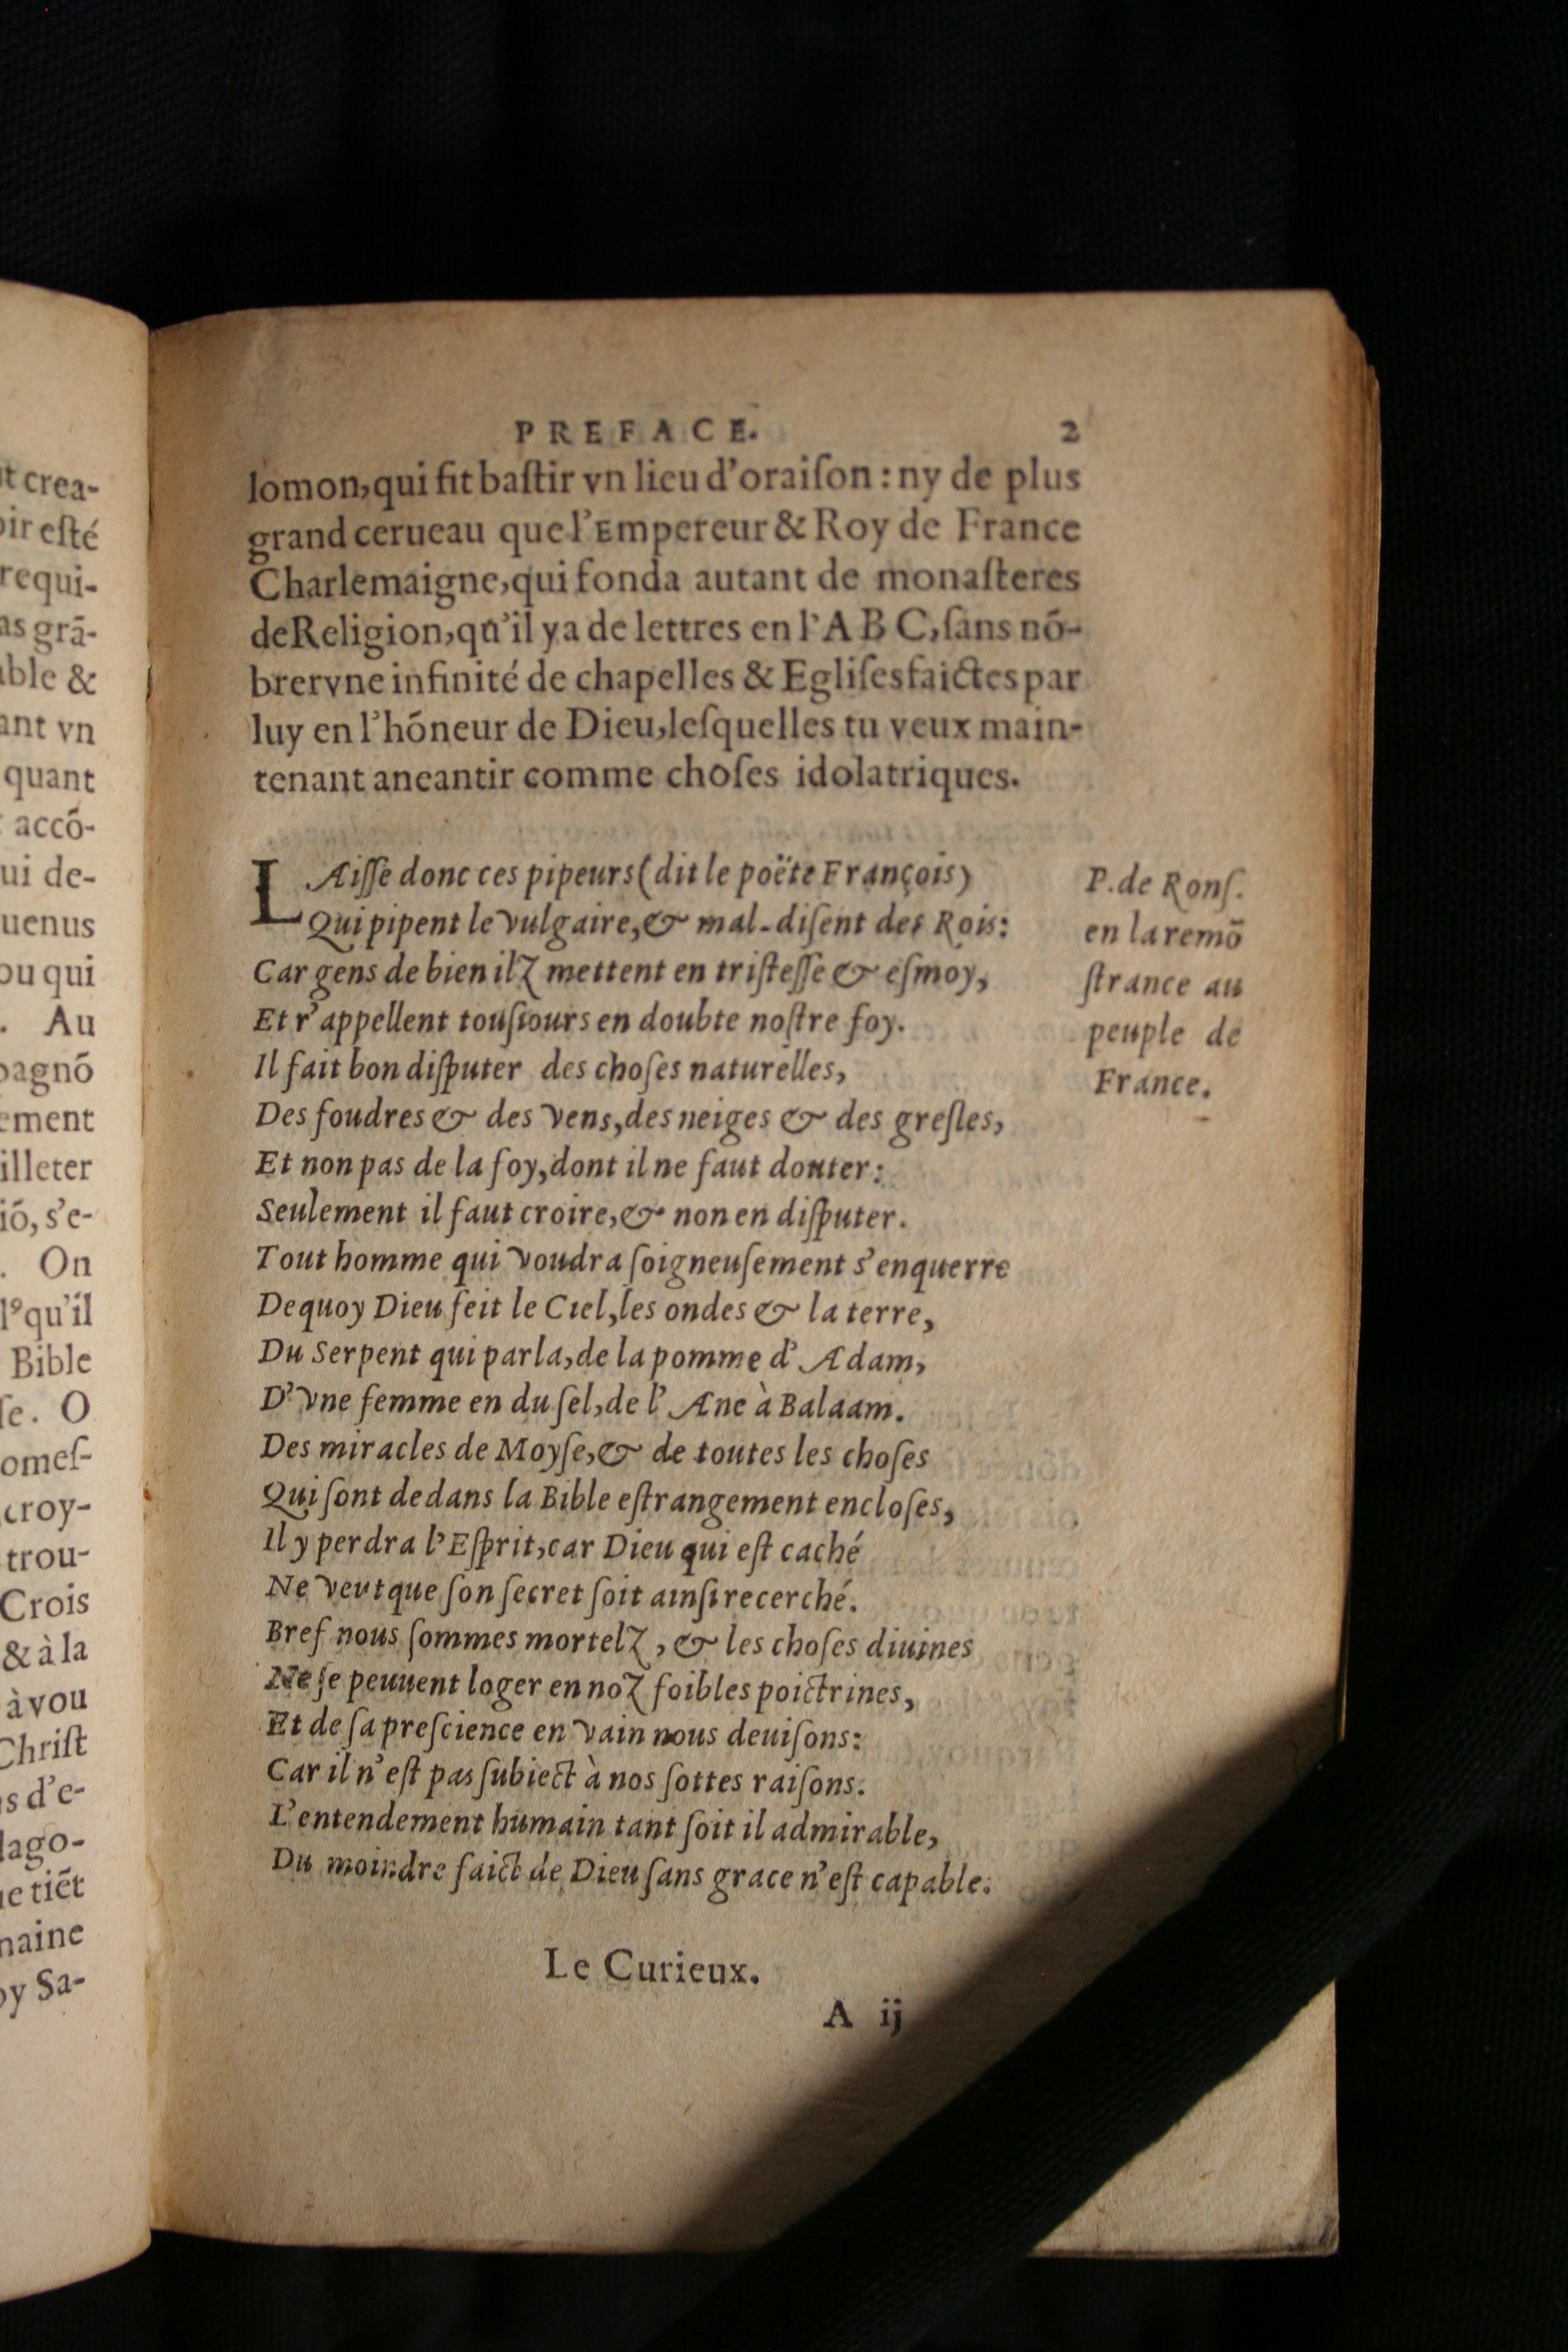 t crea-
oir eſté
requi-
as grā-
able &
ant vn
quant
accō-
ui de-
uenus
ou qui
. Au
pagnō
ement
illeter
iō, s'e-
. On
l⁹qu'il
Bible
ſe. O
omeſ-
croy-
trou-
Crois
& à la
à vou
Chriſt
s d'e-
lago-
ue tiēt
maine
oy Sa-
PREFACE. 2
lomon, qui fit baſtir vn lieu d'oraiſon : ny de plus
grand cerueau que l'Empereur & Roy de France
Charlemaigne, qui fonda autant de monaſteres
de Religion, qu'il y a de lettres en l'A B C, ſans nō-
brer vne infinité de chapelles & Egliſes faictes par
luy en l'hōneur de Dieu, leſquelles tu veux main-
tenant aneantir comme choſes idolatriques.
LAiſſe donc ces pipeurs (dit le poëte François)
Qui pipent le vulgaire, & mal-diſent des Rois:
Car gens de bien ilz mettent en triſteſſe & eſmoy,
Et r'appellent touſiours en doubte noſtre foy.
Il fait bon diſputer des choſes naturelles,
Des foudres & des vens, des neiges & des greſles,
Et non pas de la foy, dont il ne faut douter:
Seulement il faut croire, & non en diſputer.
Tout homme qui voudra ſoigneuſement s'enquerre
Dequoy Dieu feit le Ciel, les ondes & la terre,
Du Serpent qui parla, de la pomme d'Adam,
D'vne femme en du ſel, de l'Ane à Balaam.
Des miracles de Moyſe, & de toutes les choſes
Qui ſont dedans la Bible eſtrangement encloſes,
Il y perdra l'Eſprit, car Dieu qui eſt caché
Ne veut que ſon ſecret ſoit ainſi recerché.
Bref nous ſommes mortelz, & les choſes diuines
Ne ſe peuuent loger en noz foibles poictrines,
Et de ſa preſcience en vain nous deuiſons:
Car il n'eſt pas ſubiect à nos ſottes raiſons.
L'entendement humain tant ſoit il admirable,
Du moindre faict de Dieu ſans grace n'eſt capable.
P. de Ronſ.
en la remō
ſtrance au
peuple de
France.
Le Curieux.
A ij